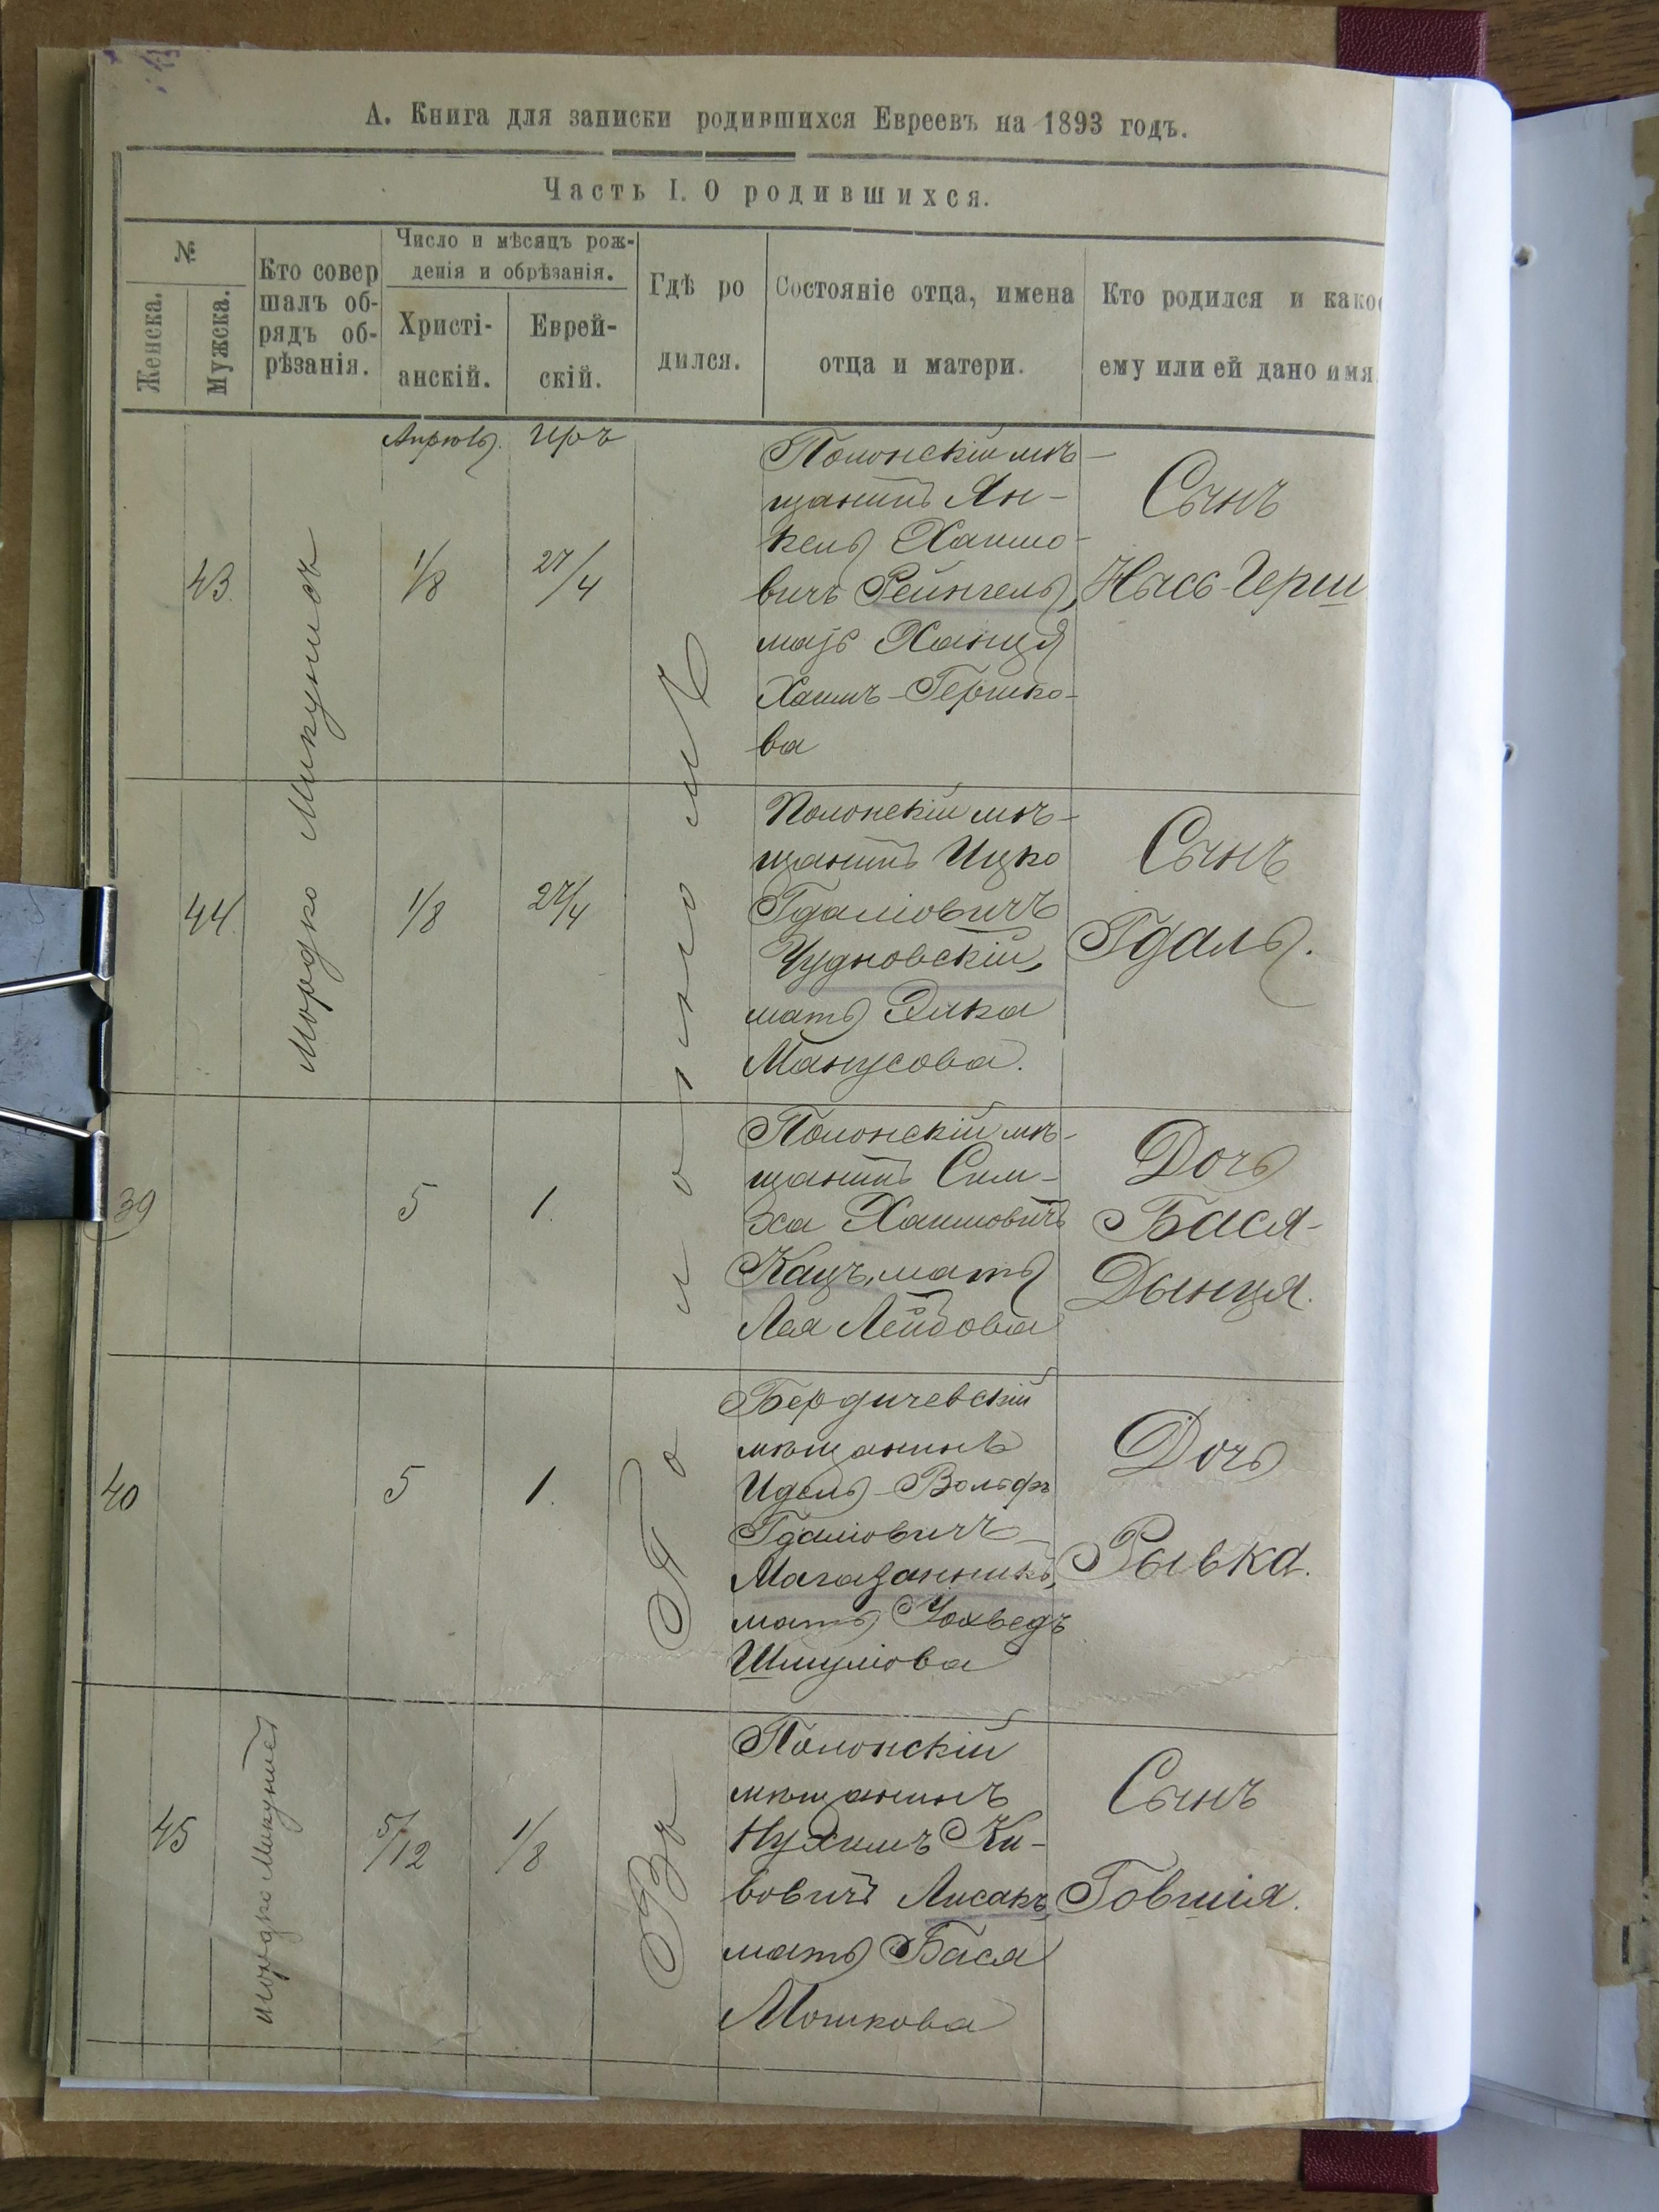 А. Книга для записки родившихся Евреевъ на 1893 годъ.
Часть I. О родившихся.
№
Женска.
Мужска.
Кто совер
шалъ об-
рядъ об-
рѣзанія.
Число и мѣсяцъ рож-
денія и обрѣзанія.
Христі-
анскій.
Еврей-
скій.
Гдѣ ро
дился.
Состояніе отца, имена
отца и матери.
Кто родился и како
ему или ей дано имя
Апрѣль Иръ
43
Мордко Микунисъ
1/8
27/4
Въ г. Полонномъ
Полонскій мѣ-
щанинъ Ян-
кель Хаимо-
вичъ Рейнгель,
мать Ханця
Хаимъ-Гершко-
ва
Сынъ
Нысь-Герш
44
1/8
27/4
Полонскій мѣ-
щанинъ Ицко
Гдаліовичъ
Чудновскій,
мать Элка
Манусова.
Сынъ
Гдаль.
39
5
1.
Полонскій мѣ-
щанинъ Сим-
ха Хаимовичъ
Кацъ, мать
Лея Лейбова
Дочь
Бася-
Дынця.
40
5
1.
Бердичевскій
мѣщанинъ
Идель-Вольфъ
Гдаліовичъ
Магазанникъ,
мать Іохведъ
Шмуліова
Дочь
Рывка.
45
Мордко Микунисъ
5/12
1/8
Полонскій
мѣщанинъ
Нухимъ Ки-
вовичъ Лисакъ,
мать Бася
Мошкова
Сынъ
Говшія.